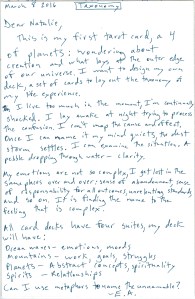 March 8 2016 Taxonomy
Dear Natalie,
This is my first tarot card, a 4
of planets: wondering about
creation and what lays at the outer edge
of our universe. I want to design my own
deck, a set of cards to lay out the taxonomy of
my life experience.
I live too much in the moment, I'm continuously
shocked. I lay awake at night trying to process
the confusion. I can't map the name and effect,
Once I can name it, my mind quiets, the dust
storm settles. I can examine the situation. A
pebble dropping through water - clarity.
My emotions are not so complex, I get lost in the
same places over and over: sense of abandonment, sense
of responsibility for all outcomes,
and so on. It is finding the name to the
feeling that is complex.
All card decks have four suites, my deck
will have:
Ocean waves - emotions, moods
Mountains - work, goals, struggles
Planets - Abstract / concepts, spirituality
Spirits - Relationships
Can I use metaphors to name the unnameable?
- E.A.